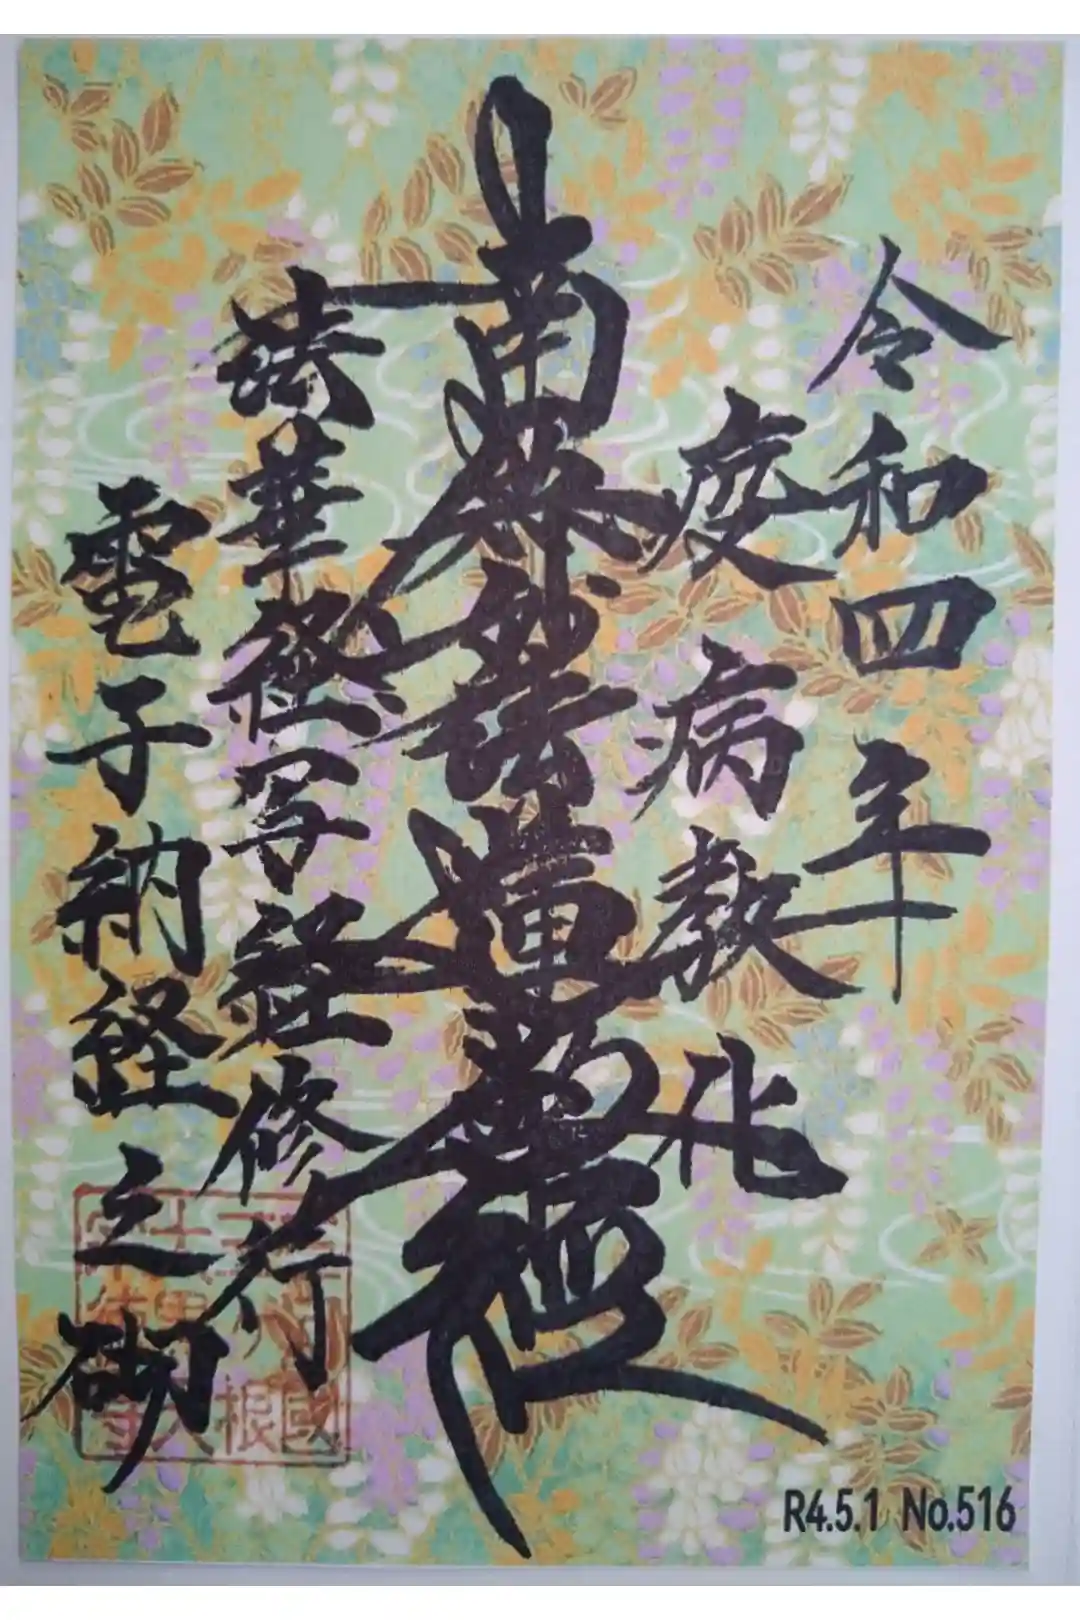 令和四年
疫病教化
南無妙法蓮華経
法華経写経修行
電子納経之砌
R4.5.1 No.516